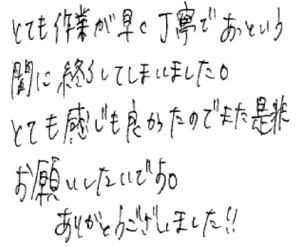 とても作業が早く丁寧であっという
間に終了してしまいました。
とても感じも良かったのでまた是非
お願いしたいです。
ありがとうございました!!